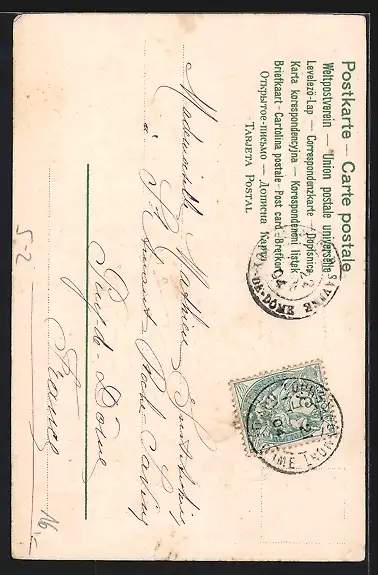 Postkarte — Carte postale
Weltpostverein — Union postale universelle
Levelező-Lap — Correspondenzkarte — Dopisnice
Karta korespondencyjna — Korespondenční lístek
Briefkaart - Cartolina postale - Post card - Brefkort
Открытое-письмо — Дописна Карта
Tarjeta Postal
Mademoiselle Mathieu
à St Amant - Roche - Savine
Puy-de-Dôme
France
5-2
16,-
04
-DE-DOME